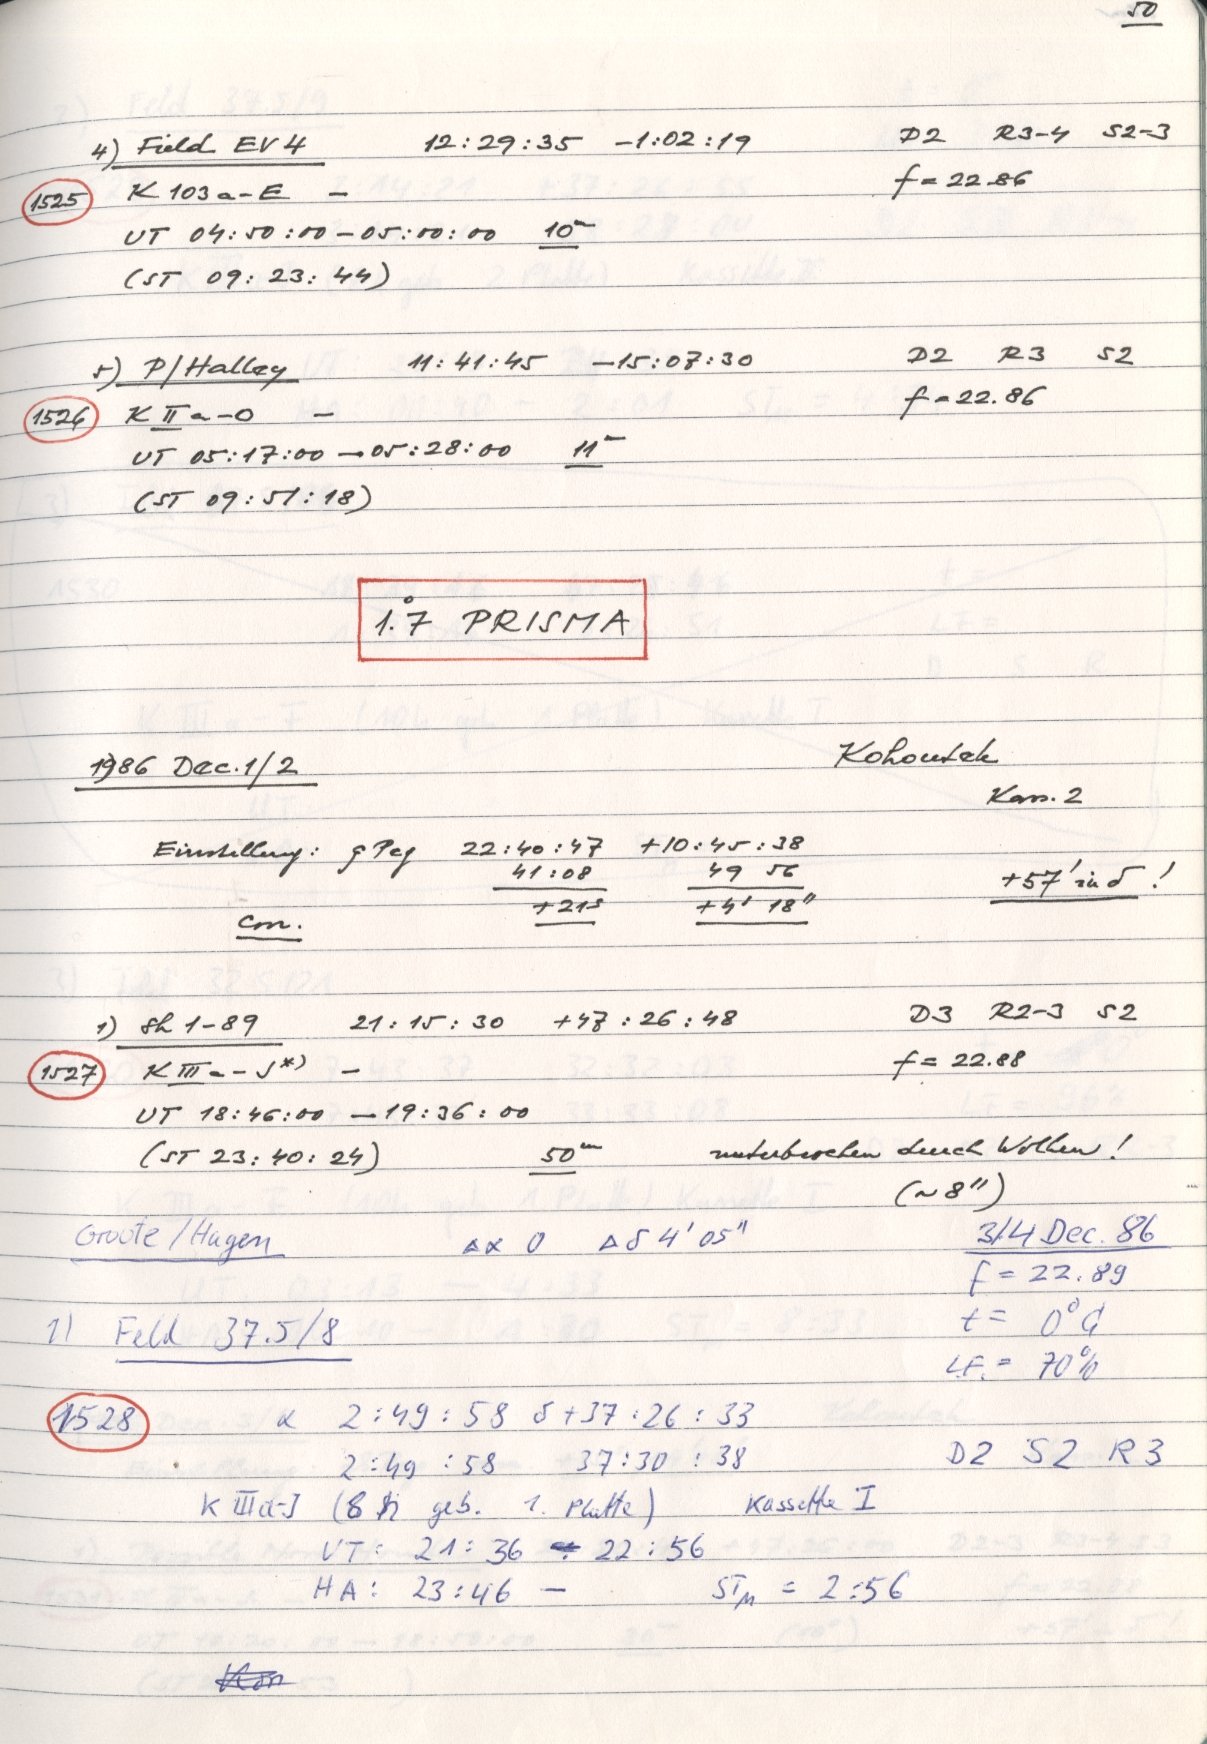 50
4) Field EV4 12:29:35 -1:02:19 D2 R3-4 S2-3
1525 K 103a-E - f = 22.86
UT 04:50:00 - 05:00:00 10m
(ST 09:23:44)
5) P/Halley 11:41:45 -15:07:30 D2 R3 S2
1526 K IIa-O - f = 22.86
UT 05:17:00 - 05:28:00 11m
(ST 09:51:18)
1.°7 PRISMA
1986 Dec. 1/2 Kohoutek
Kass. 2
Einstellung: ζ Peg 22:40:47 +10:45:38
41:08 49 56 +57' in δ!
Corr. +21s +4' 18"
1) Sh 1-89 21:15:30 +47:26:48 D3 R2-3 S2
1527 K IIIa-J*) - f = 22.88
UT 18:46:00 - 19:36:00
(ST 23:40:24) 50m unterbrochen durch Wolken!
(~8")
Groote/Hagen Δα 0 Δδ 4' 05" 3/4 Dec. 86
f = 22.89
1) Feld 37.5/8 t = 0°C
L.F. = 70%
1528 α 2:49:58 δ +37:26:33
2:49:58 37:30:38 D2 S2 R3
K IIIa-J (8 h geb. 1. Platte) Kassette I
UT: 21:36 - 22:56
HA: 23:46 - STM = 2:56